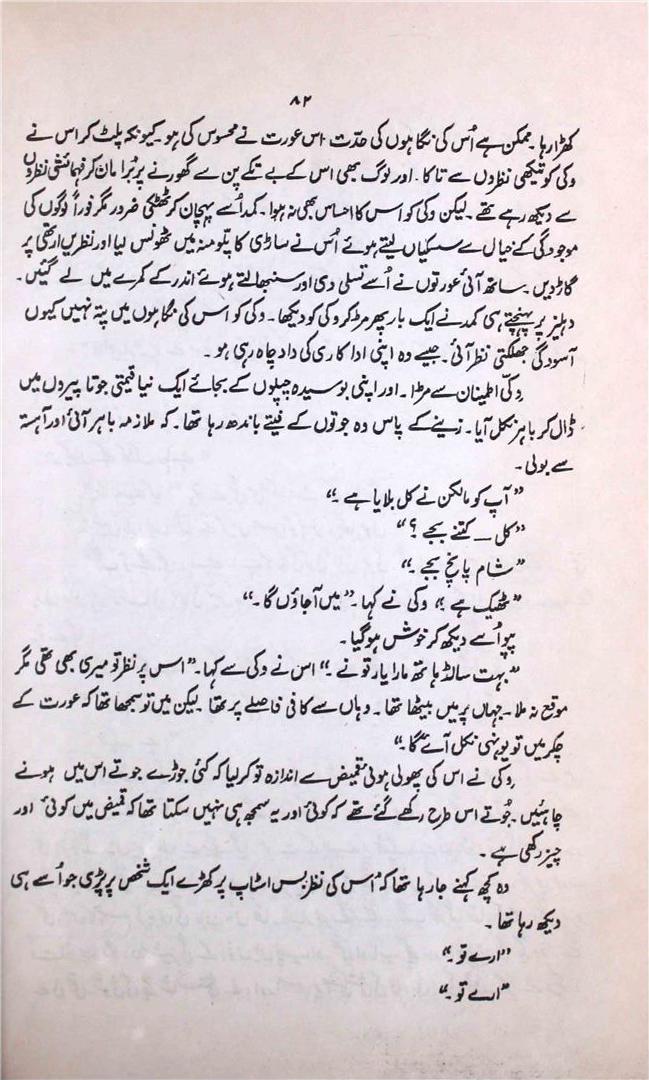 ۸۲
کھڑا رہا۔ ممکن ہے اُس کی نگاہوں کی حدّت اس عورت نے محسوس کی ہو۔ کیونکہ پلٹ کر اس نے
وکی کو تیکھی نظروں سے تاکا۔ اور لوگ بھی اس کے بے تکے پن سے گھورنے پر بُرا مان کر فہمائشی نظروں
سے دیکھ رہے تھے۔ لیکن وکی کو اس کا احساس بھی نہ ہوا۔ کمد اُسے پہچان کر ٹھٹکی ضرور مگر فوراً لوگوں کی
موجودگی کے خیال سے سسکیاں لیتے ہوئے اُس نے ساڑی کا پلّو منہ میں ٹھونس لیا اور نظریں ارتھی پر
گاڑدیں۔ ساتھ آئی عورتوں نے اُسے تسلی دی اور سنبھالتے ہوئے اندر کے کمرے میں لے گئیں۔
دہلیز پر پہنچتے ہی کمد نے ایک بار پھر مڑ کر وکی کو دیکھا۔ وکی کو اس کی نگاہوں میں پتہ نہیں کیوں
آسودگی جھلکتی نظر آئی۔ جیسے وہ اپنی اداکاری کی داد چاہ رہی ہو۔
وکی اطمینان سے مڑا۔ اور اپنی بوسیدہ چپلوں کے بجائے ایک نیا قیمتی جوتا پیروں میں
ڈال کر باہر نکل آیا۔ زینے کے پاس وہ جوتوں کے فیتے باندھ رہا تھا۔ کہ ملازمہ باہر آئی اور آہستہ
سے بولی۔
”آپ کو مالکن نے کل بلایا ہے۔“
”کل ــ کتنے بجے؟“
”شام پانچ بجے۔“
”ٹھیک ہے۔“ وکی نے کہا۔ ”میں آجاؤں گا۔“
پپو اُسے دیکھ کر خوش ہوگیا۔
”بہت سالڈ ہاتھ مارا یار تو نے۔“ اس نے وکی سے کہا۔ ”اس پر نظر تو میری بھی تھی مگر
موقع نہ ملا۔ جہاں پر میں بیٹھا تھا۔ وہاں سے کافی فاصلے پر تھا۔ لیکن میں تو سمجھا تھا کہ عورت کے
چکر میں تو یونہی نکل آئے گا۔“
وکی نے اس کی پھولی ہوئی قمیض سے اندازہ تو کر لیا کہ کئی جوڑے جوتے اس میں ہونے
چاہئیں۔ جُوتے اس طرح رکھے گئے تھے کہ کوئی اور یہ سمجھ ہی نہیں سکتا تھا کہ قمیض میں کوئی اور
چیز رکھی ہے۔
وہ کچھ کہنے جا رہا تھا کہ اُس کی نظر بس اسٹاپ پر کھڑے ایک شخص پر پڑی جو اُسے ہی
دیکھ رہا تھا۔
”ارے تو۔“
”ارے تو۔“